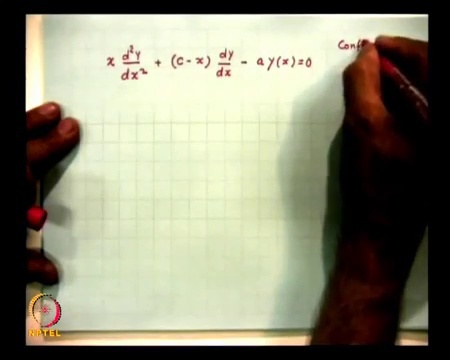 x d²y/dx² + (c - x) dy/dx - a y(x) = 0
Conf
NPTEL